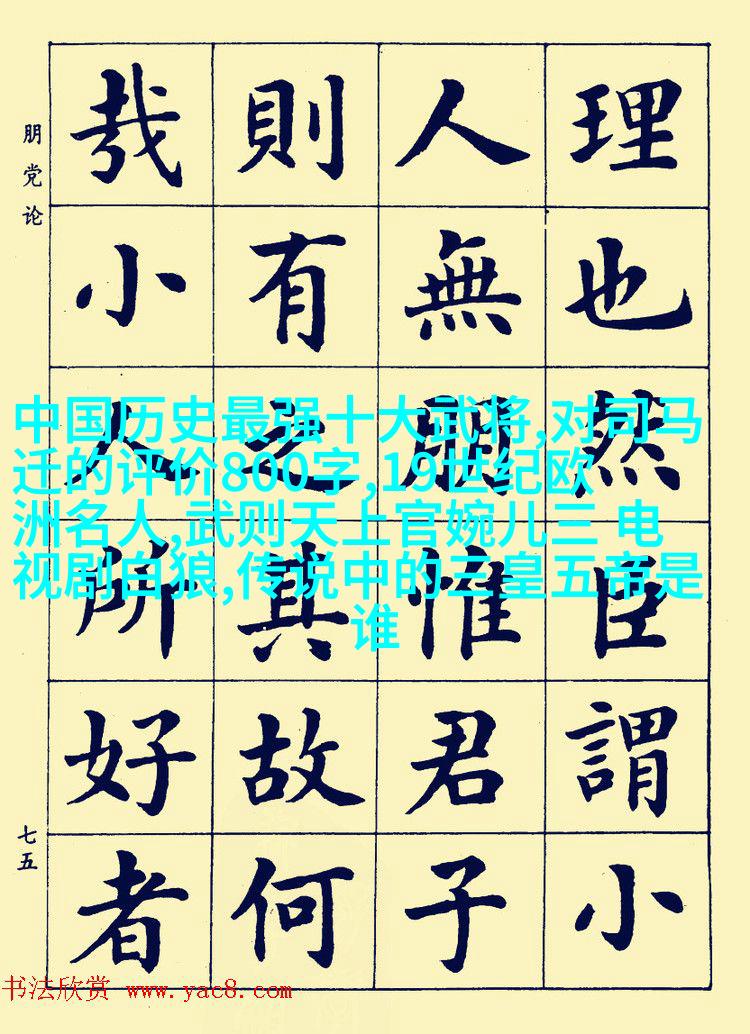 理也然臣謂小
人無朋惟君子
則有之其故何
哉小人所好者
朋党论
七五
中国历史最强十大武将,对司马
迁的评价800字,19世纪欧
洲名人,武则天上官婉儿三 电
视剧白狼,传说中的三皇五帝是
谁
书法欣赏 www.yac8.com